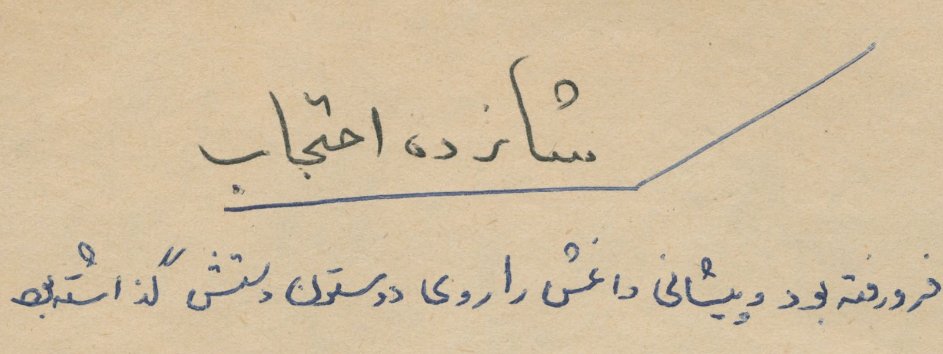 شازده احتجاب
فرو رفته بود و پیشانی داغش را روی دو ستون دستش گذاشته بود